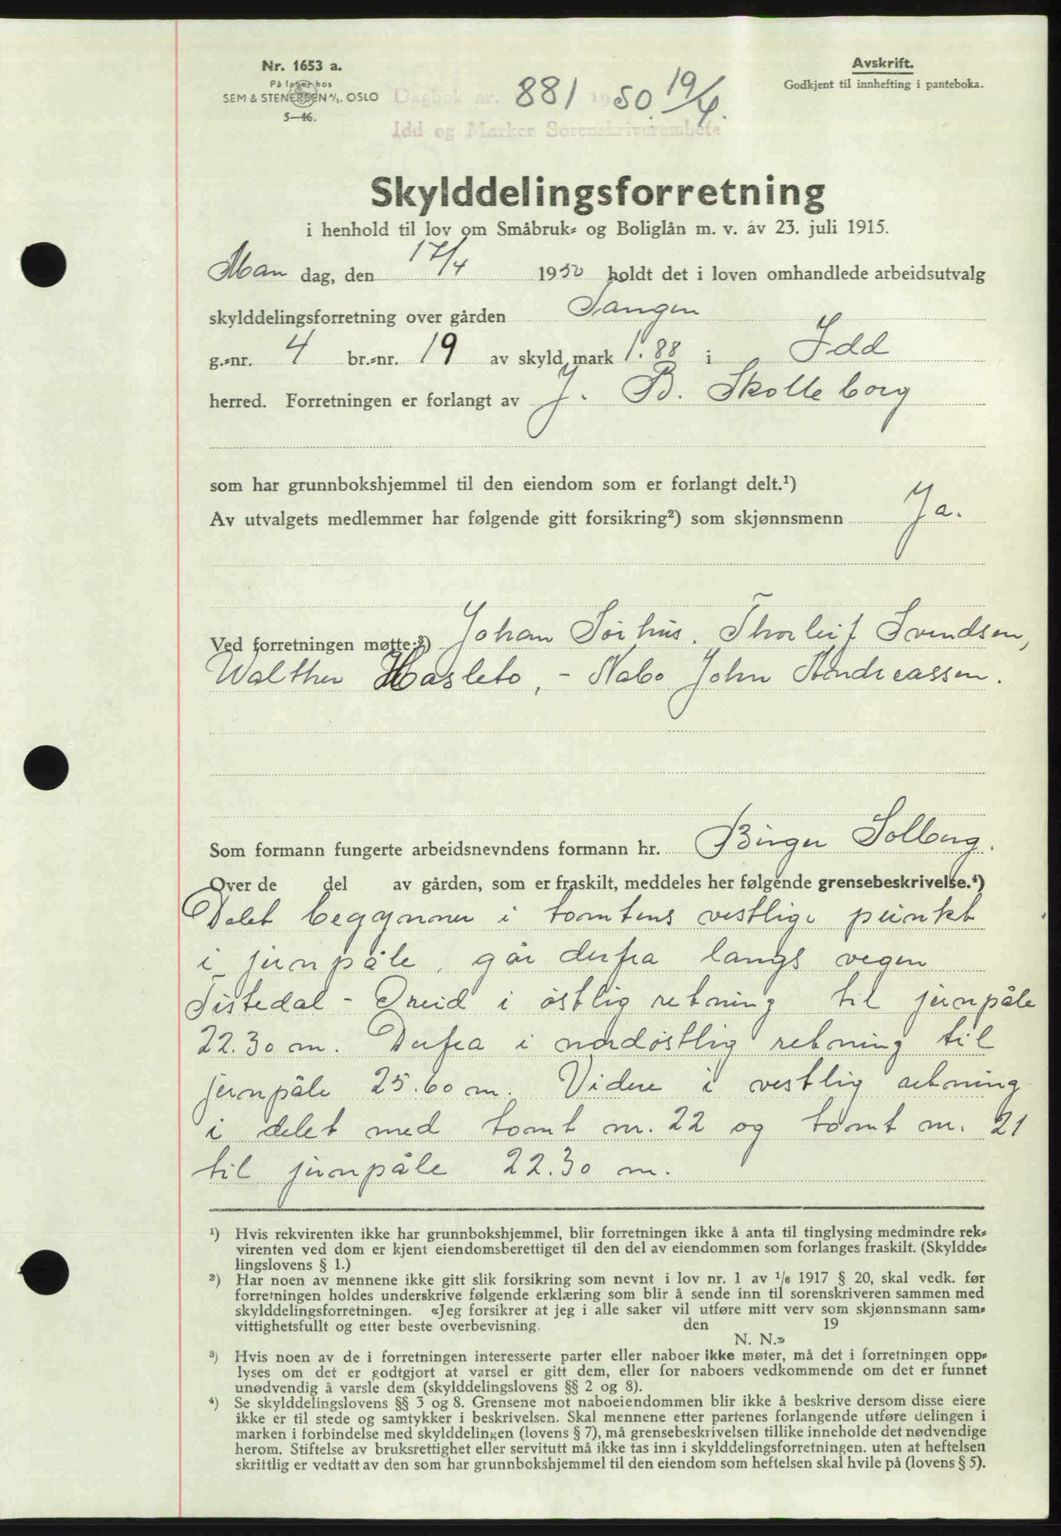 Nr. 1653 a.
På lager hos
SEM & STENERSEN A/S. OSLO
5—46.
Dagbok nr. 881 1950. 19/4.
Idd og Marker Sorenskriverembete
Avskrift.
Godkjent til innhefting i panteboka.
Skylddelingsforretning
i henhold til lov om Småbruk= og Boliglån m. v. av 23. juli 1915.
Man dag, den 17/4 1950 holdt det i loven omhandlede arbeidsutvalg
skylddelingsforretning over gården Tangen
g.=nr. 4 br.=nr. 19 av skyld mark 1.88 i Idd
herred. Forretningen er forlangt av J. B. Skolleborg
som har grunnbokshjemmel til den eiendom som er forlangt delt.¹)
Av utvalgets medlemmer har følgende gitt forsikring²) som skjønnsmenn Ja.
Ved forretningen møtte:³) Johan Sørhus. Thorleif Svendsen,
Walther Hasleto, - Nabo John Andreassen.
Som formann fungerte arbeidsnevndens formann hr. Birger Solberg.
Over de del av gården, som er fraskilt, meddeles her følgende grensebeskrivelse.⁴)
Delet begynner i tomtens vestlige punkt
i jernpåle, går derfra langs vegen
Tistedal - Øreid i østlig retning til jernpåle
22.30 m. Derfra i nordøstlig retning til
jernpåle 25.60 m. Videre i vestlig retning
i delet med tomt nr. 22 og tomt nr. 21
til jernpåle 22.30 m.
¹) Hvis rekvirenten ikke har grunnbokshjemmel, blir forretningen ikke å anta til tinglysing medmindre rek=
virenten ved dom er kjent eiendomsberettiget til den del av eiendommen som forlanges fraskilt. (Skyldde=
lingslovens § 1.)
²) Har noen av mennene ikke gitt slik forsikring som nevnt i lov nr. 1 av 1/6 1917 § 20, skal vedk. før
forretningen holdes underskrive følgende erklæring som blir å sende inn til sorenskriveren sammen med
skylddelingsforretningen. «Jeg forsikrer at jeg i alle saker vil utføre mitt verv som skjønnsmann sam=
vittighetsfullt og etter beste overbevisning. den 19
N. N.»
³) Hvis noen av de i forretningen interesserte parter eller naboer ikke møter, må det i forretningen opp=
lyses om det er godtgjort at varsel er gitt dem, eller for naboers vedkommende om det er funnet
unødvendig å varsle dem (skylddelingslovens §§ 2 og 8).
⁴) Se skylddelingslovens §§ 3 og 8. Grensene mot naboeiendommen blir ikke å beskrive dersom disse eiere
ikke er til stede og samtykker i beskrivelsen. Skal mennene etter partenes forlangende utføre delingen i
marken i forbindelse med skylddelingen (lovens § 7), må grensebeskrivelsen tillike inneholde det nødvendige
herom. Stiftelse av bruksrettighet eller servitutt må ikke tas inn i skylddelingsforretningen. uten at heftelsen
skriftlig er vedtatt av den som har grunnbokshjemmel til den eiendom som heftelsen skal hvile på (lovens § 5).